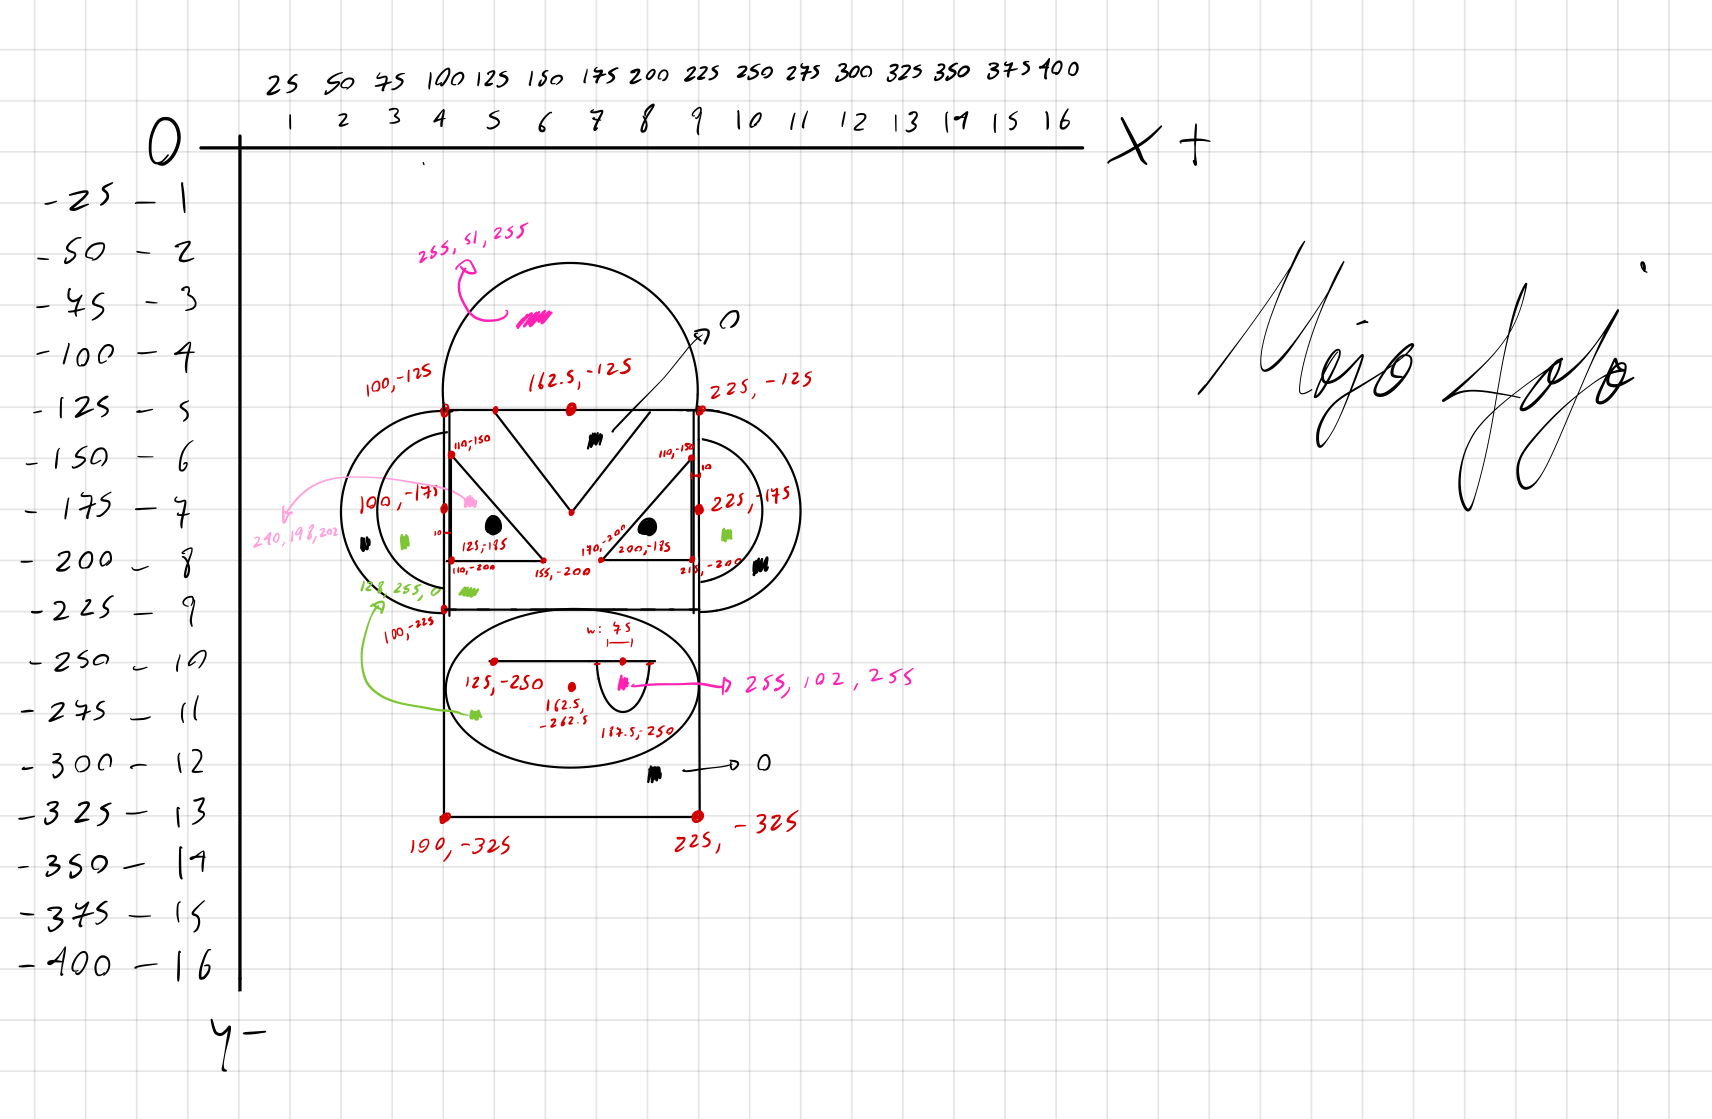 25 50 75 100 125 150 175 200 225 250 275 300 325 350 375 400
1 2 3 4 5 6 7 8 9 10 11 12 13 14 15 16
0
X +
-25 - 1
-50 - 2
-75 - 3
-100 - 4
-125 - 5
-150 - 6
-175 - 7
-200 - 8
-225 - 9
-250 - 10
-275 - 11
-300 - 12
-325 - 13
-350 - 14
-375 - 15
-400 - 16
y -
255, 51, 255
0
100,-125
162.5, -125
225, -125
110,-150
110,-150
10
100,-175
225,-175
240,198,202
10
125,-185
170,-200
200,-185
110,-200
155,-200
215,-200
128,255,0
100,-225
w: 75
125,-250
255, 102, 255
162.5,
-262.5
187.5,-250
0
100,-325
225, -325
Mojo Jojo